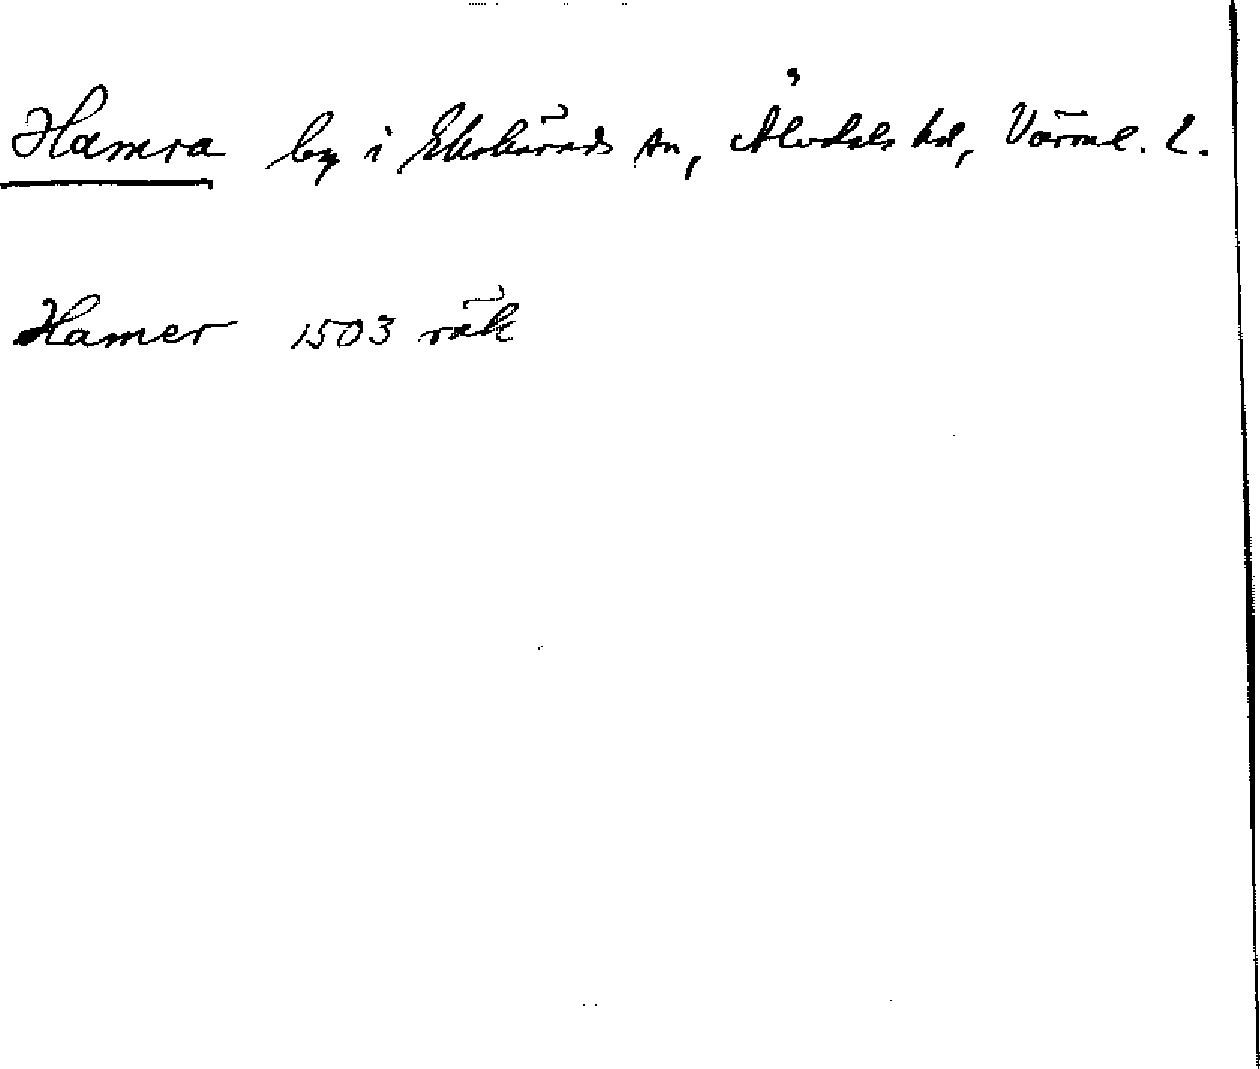 Hamra by i Ekshärads sn, Älvdals hd, Värml. l.
Hamer 1503 räk